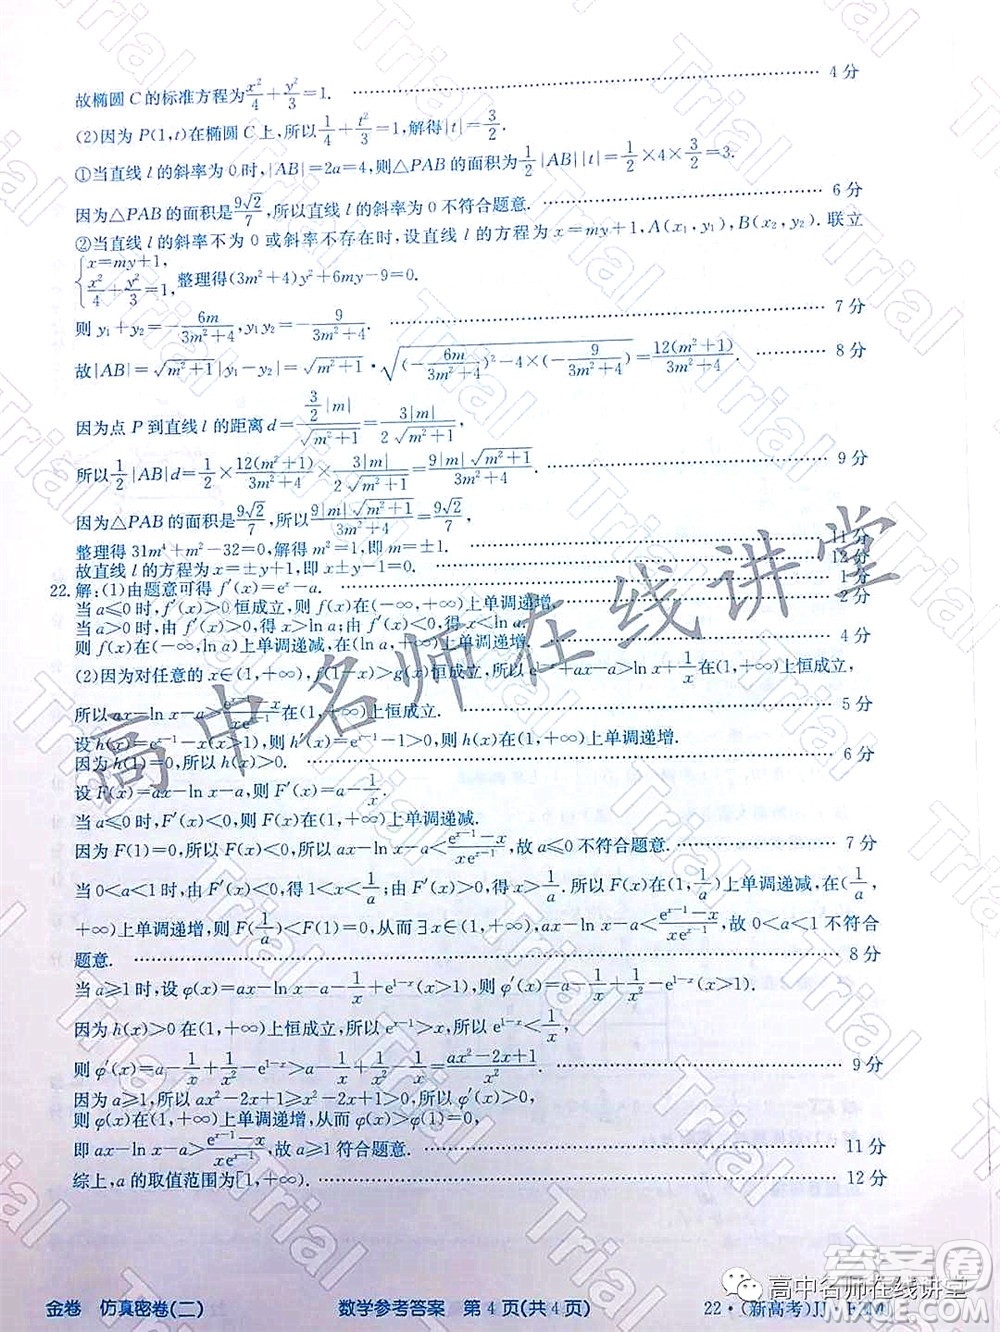 故椭圆 C 的标准方程为x²/4+y²/3=1. 4 分
(2)因为 P(1,t)在椭圆 C 上,所以1/4+t²/3=1,解得|t|=3/2.
①当直线 l 的斜率为 0 时,|AB|=2a=4,则△PAB 的面积为1/2|AB||t|=1/2×4×3/2=3.
因为△PAB 的面积是9√2/7,所以直线 l 的斜率为 0 不符合题意. 6 分
②当直线 l 的斜率不为 0 或斜率不存在时,设直线 l 的方程为 x=my+1,A(x₁,y₁),B(x₂,y₂).联立
{x=my+1, x²/4+y²/3=1,整理得(3m²+4)y²+6my-9=0.
则 y₁+y₂=-6m/(3m²+4),y₁y₂=-9/(3m²+4). 7 分
故|AB|=√(m²+1)|y₁-y₂|=√(m²+1)·√((-6m/(3m²+4))²-4×(-9/(3m²+4)))=12(m²+1)/(3m²+4). 8 分
因为点 P 到直线 l 的距离 d=(3/2|m|)/√(m²+1)=3|m|/(2√(m²+1)),
所以1/2|AB|d=1/2×12(m²+1)/(3m²+4)×3|m|/(2√(m²+1))=9|m|√(m²+1)/(3m²+4). 9 分
因为△PAB 的面积是9√2/7,所以9|m|√(m²+1)/(3m²+4)=9√2/7,
整理得 31m⁴+m²-32=0,解得 m²=1,即 m=±1. 11 分
故直线 l 的方程为 x±y-1=0. 12 分
22.解:(1)由题意可得 f′(x)=eˣ-a. 1 分
当 a≤0 时,f′(x)>0 恒成立,则 f(x)在(-∞,+∞)上单调递增. 2 分
当 a>0 时,由 f′(x)>0,得 x>ln a,由 f′(x)<0,得 x<ln a,
则 f(x)在(-∞,ln a)上单调递减,在(ln a,+∞)上单调递增. 4 分
(2)因为对任意的 x∈(1,+∞),f(x)>g(x)恒成立,所以 e¹⁻ˣ+ax-a>ln x+1/x在(1,+∞)上恒成立,
所以 ax-ln x-a>(eˣ⁻¹-x)/(xeˣ⁻¹)在(1,+∞)上恒成立. 5 分
设 h(x)=eˣ⁻¹-x(x>1),则 h′(x)=eˣ⁻¹-1>0,故 h(x)在(1,+∞)上单调递增.
因为 h(1)=0,所以 h(x)>0. 6 分
设 F(x)=ax-ln x-a,则 F′(x)=a-1/x.
当 a≤0 时,F′(x)<0,则 F(x)在(1,+∞)上单调递减.
因为 F(1)=0,所以 F(x)<0,所以 ax-ln x-a<(eˣ⁻¹-x)/(xeˣ⁻¹),故 a≤0 不符合题意. 7 分
当 0<a<1 时,由 F′(x)<0,得 1<x<1/a,由 F′(x)>0,得 x>1/a,则 F(x)在(1,1/a)上单调递减,在(1/a,
+∞)上单调递增,所以 F(1/a)<F(1)=0,从而∃x∈(1,+∞),使得 ax-ln x-a<(eˣ⁻¹-x)/(xeˣ⁻¹),故 0<a<1 不符合
题意. 8 分
当 a≥1 时,设 φ(x)=ax-ln x-a-1/x+e¹⁻ˣ(x>1),则 φ′(x)=a-1/x+1/x²-e¹⁻ˣ.
因为 h(x)>0 在(1,+∞)上恒成立,所以 eˣ⁻¹>x,所以 e¹⁻ˣ<1/x,
则 φ′(x)>a-1/x+1/x²-1/x=(ax²-2x+1)/x². 9 分
因为 a≥1,所以 ax²-2x+1≥x²-2x+1>0,所以 φ′(x)>0,
则 φ(x)在(1,+∞)上单调递增,从而 φ(x)>φ(1)=0,
即 ax-ln x-a>(eˣ⁻¹-x)/(xeˣ⁻¹),故 a≥1 符合题意. 11 分
综上,a 的取值范围为[1,+∞). 12 分
金卷 仿真密卷(二) 数学参考答案 第 4 页(共 4 页) 22·(新高考)JJ·FZM
高中名师在线讲堂
高中名师在线讲堂
答案圈
MXQE.COM
Trial